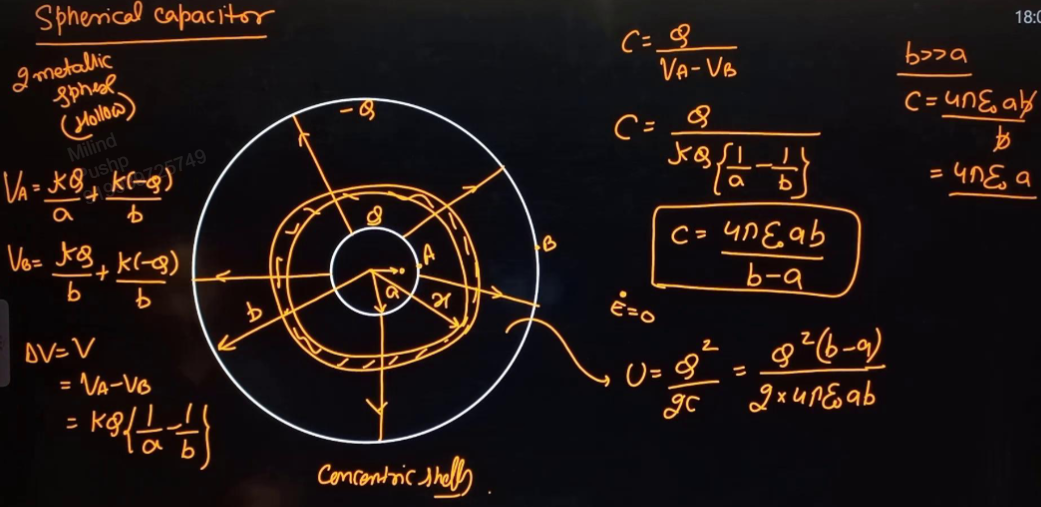 Spherical capacitor
18:0
2 metallic
sphere
(Hollow)
Milind
Pushp
VA = kQ/a + k(-Q)/b
VB = kQ/b + k(-Q)/b
ΔV = V
= VA - VB
= kQ{1/a - 1/b}
-Q
Q
A
B
a
x
b
Concentric shells.
C = Q/(VA - VB)
C = Q/(kQ{1/a - 1/b})
C = 4πε₀ab/(b-a)
E=0
U = Q²/2C = Q²(b-a)/(2×4πε₀ab)
b>>a
C = 4πε₀ab/b
= 4πε₀a